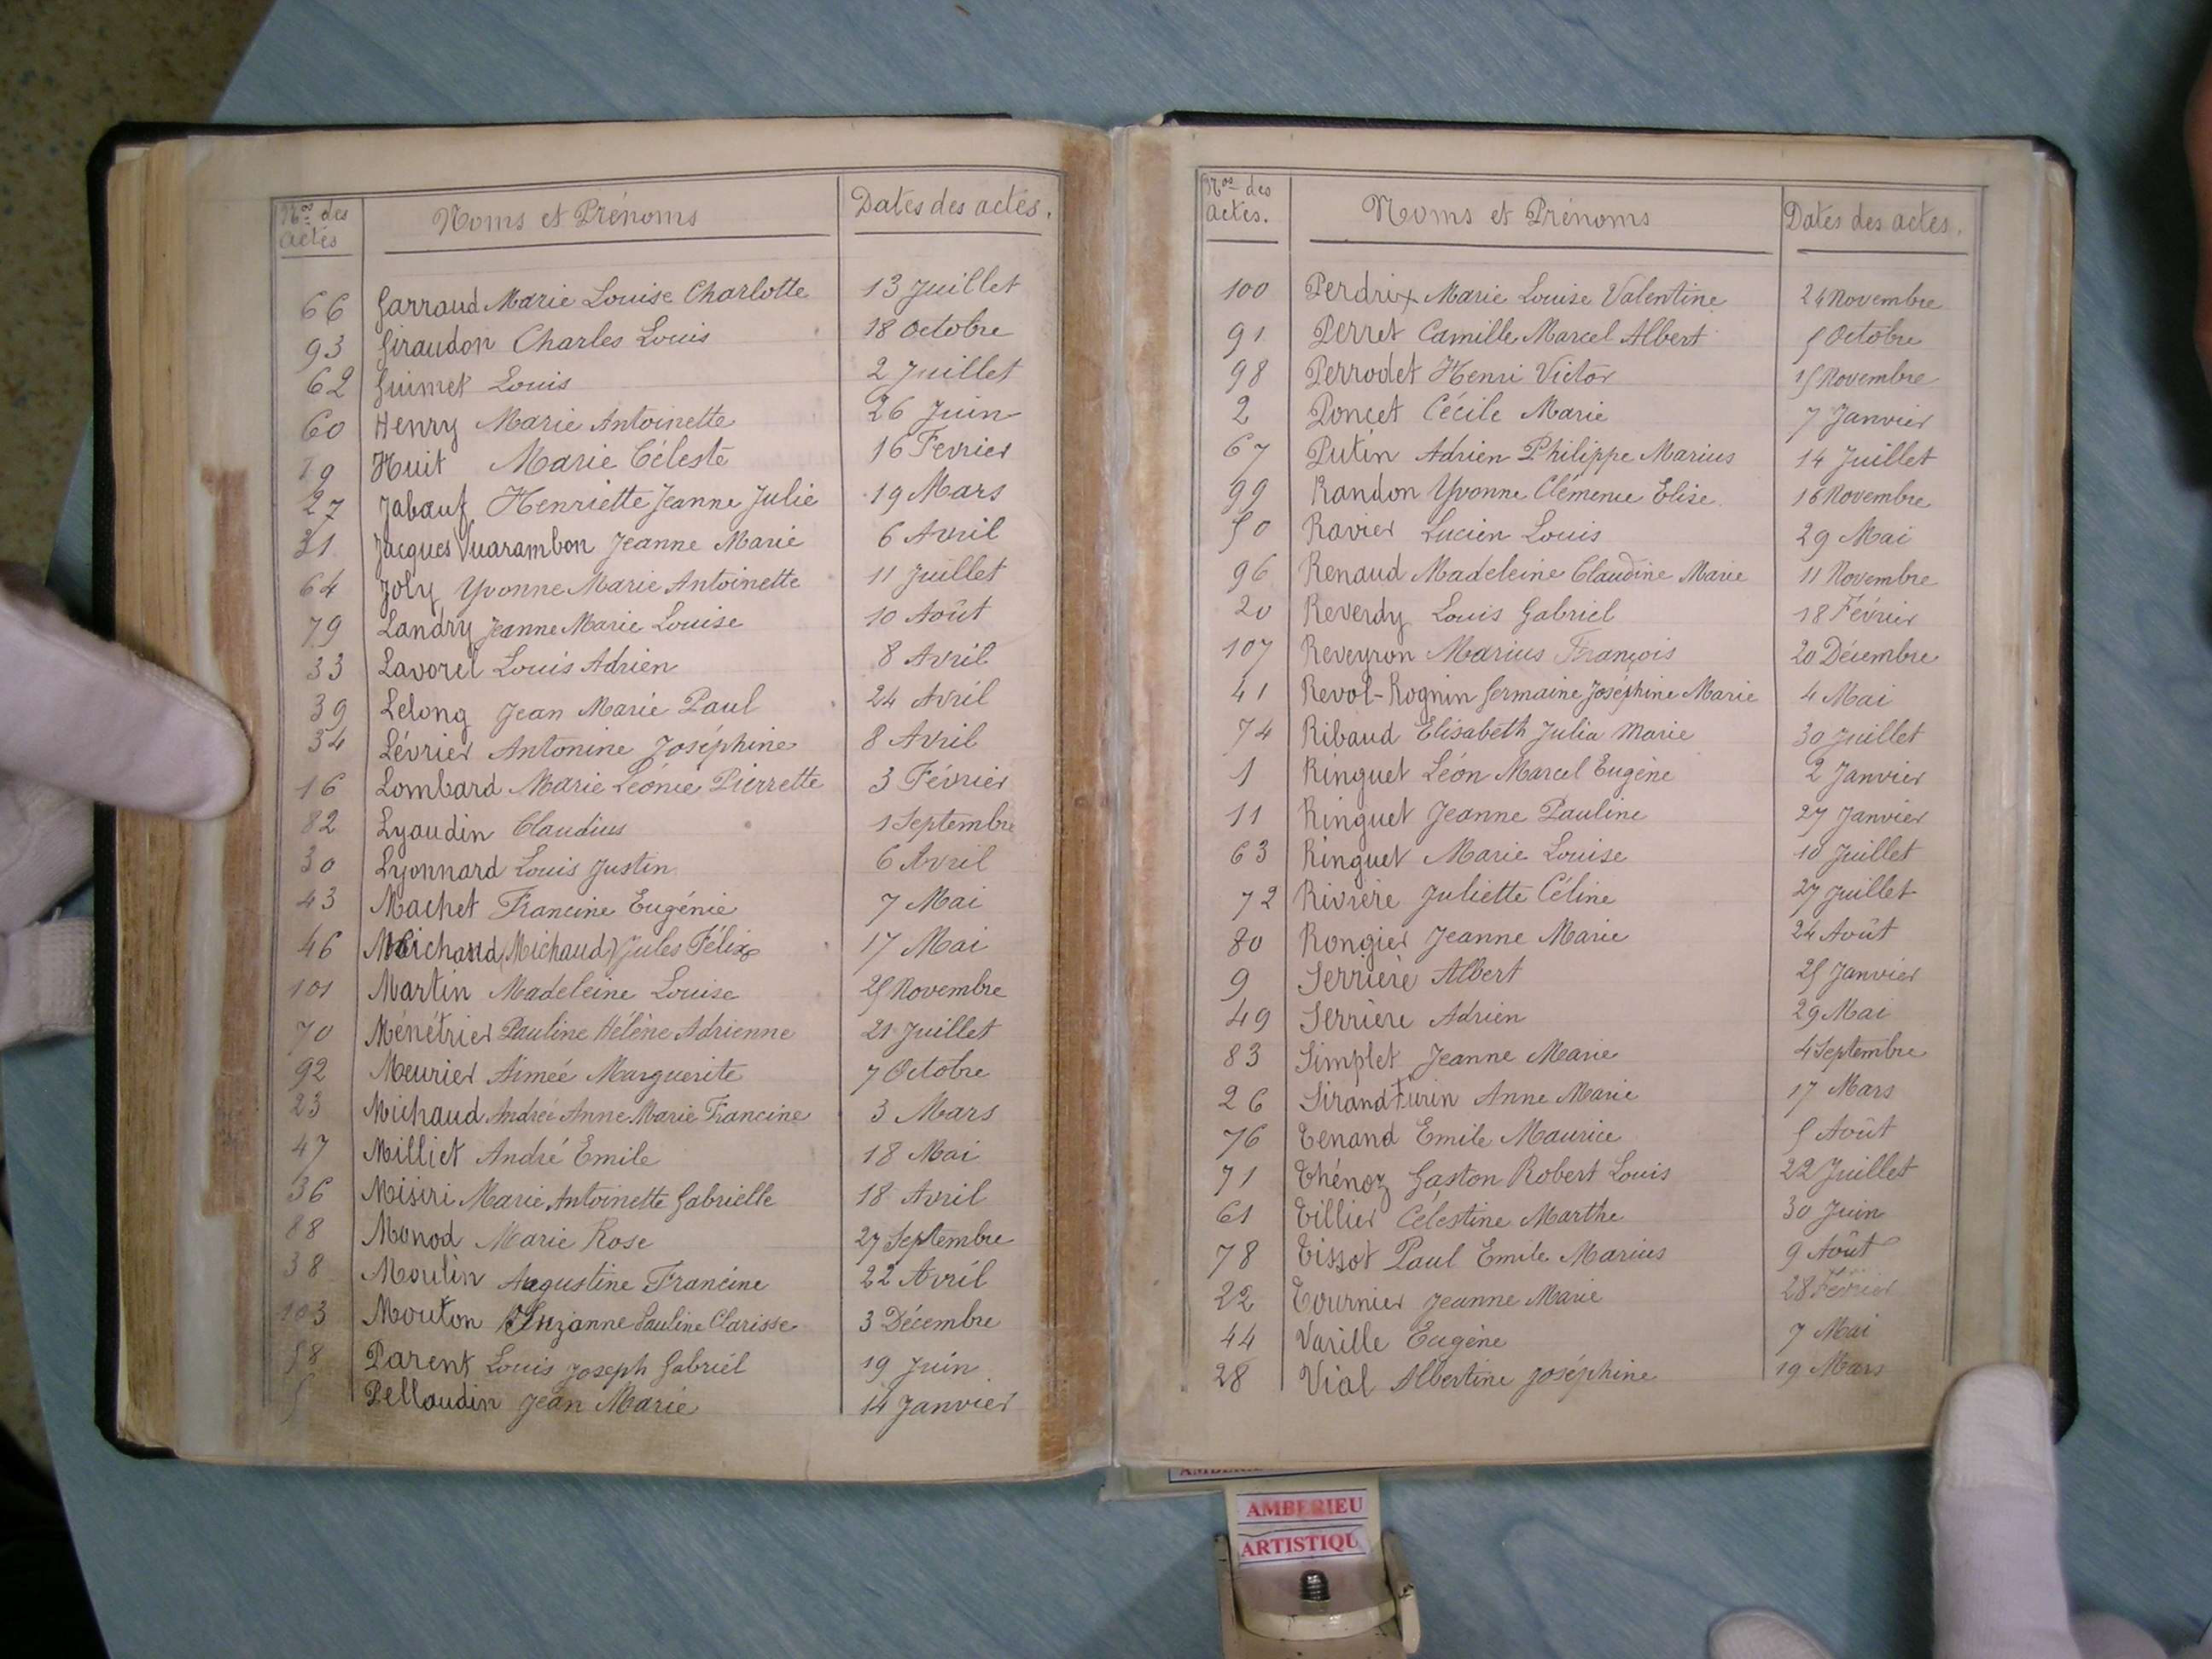 Nos des actes Noms et Prénoms Dates des actes.
66 Garraud Marie Louise Charlotte 13 Juillet
93 Giraudon Charles Louis 18 Octobre
62 Guimet Louis 2 Juillet
60 Henry Marie Antoinette 26 Juin
19 Huit Marie Céleste 16 Fevrier
27 Jabœuf Henriette Jeanne Julie 19 Mars
31 Jacques Vuarambon Jeanne Marie 6 Avril
64 Joly Yvonne Marie Antoinette 11 Juillet
79 Landry Jeanne Marie Louise 10 Août
33 Lavorel Louis Adrien 8 Avril
39 Lelong Jean Marie Paul 24 Avril
34 Lévrier Antonine Joséphine 8 Avril
16 Lombard Marie Léonie Pierrette 3 Février
82 Lyaudin Claudius 1 Septembre
30 Lyonnard Louis Justin 6 Avril
43 Machet Francine Eugénie 7 Mai
46 (Michaud) Jules Félix 17 Mai
101 Martin Madeleine Louise 25 Novembre
70 Ménétrier Pauline Hélène Adrienne 21 Juillet
92 Meunier Aimée Marguerite 7 Octobre
23 Michaud Andrée Anne Marie Francine 3 Mars
47 Milliet André Emile 18 Mai
36 Misiri Marie Antoinette Gabrielle 18 Avril
88 Monod Marie Rose 27 Septembre
38 Moulin Augustine Francine 22 Avril
103 Mouton Suzanne Pauline Clarisse 3 Décembre
58 Parent Louis Joseph Gabriel 19 Juin
5 Pellaudin Jean Marie 14 Janvier
Nos des actes. Noms et Prénoms Dates des actes.
100 Perdrix Marie Louise Valentine 24 Novembre
91 Perret Camille Marcel Albert 5 Octobre
98 Perrodet Henri Victor 15 Novembre
2 Poncet Cécile Marie 7 Janvier
67 Putin Adrien Philippe Marius 14 Juillet
99 Randon Yvonne Clémence Elise 16 Novembre
50 Ravier Lucien Louis 29 Mai
96 Renaud Madeleine Claudine Marie 11 Novembre
20 Reverdy Louis Gabriel 18 Février
107 Reveyron Marius François 20 Décembre
41 Revol-Rognin Germaine Joséphine Marie 4 Mai
74 Ribaud Elisabeth Julia Marie 30 Juillet
1 Ringuet Léon Marcel Eugène 2 Janvier
11 Ringuet Jeanne Pauline 27 Janvier
63 Ringuet Marie Louise 10 Juillet
72 Rivière Juliette Céline 27 Juillet
80 Rongier Jeanne Marie 24 Août
9 Serrière Albert 25 Janvier
49 Serrière Adrien 29 Mai
83 Simplet Jeanne Marie 4 Septembre
26 Sirand Turin Anne Marie 17 Mars
76 Tenand Emile Maurice 5 Août
71 Thénoz Gaston Robert Louis 22 Juillet
61 Tillier Célestine Marthe 30 Juin
78 Tissot Paul Emile Marius 9 Août
22 Tournier Jeanne Marie 28 Février
44 Varille Eugène 7 Mai
28 Vial Albertine Joséphine 19 Mars
AMBERIEU
ARTISTIQU